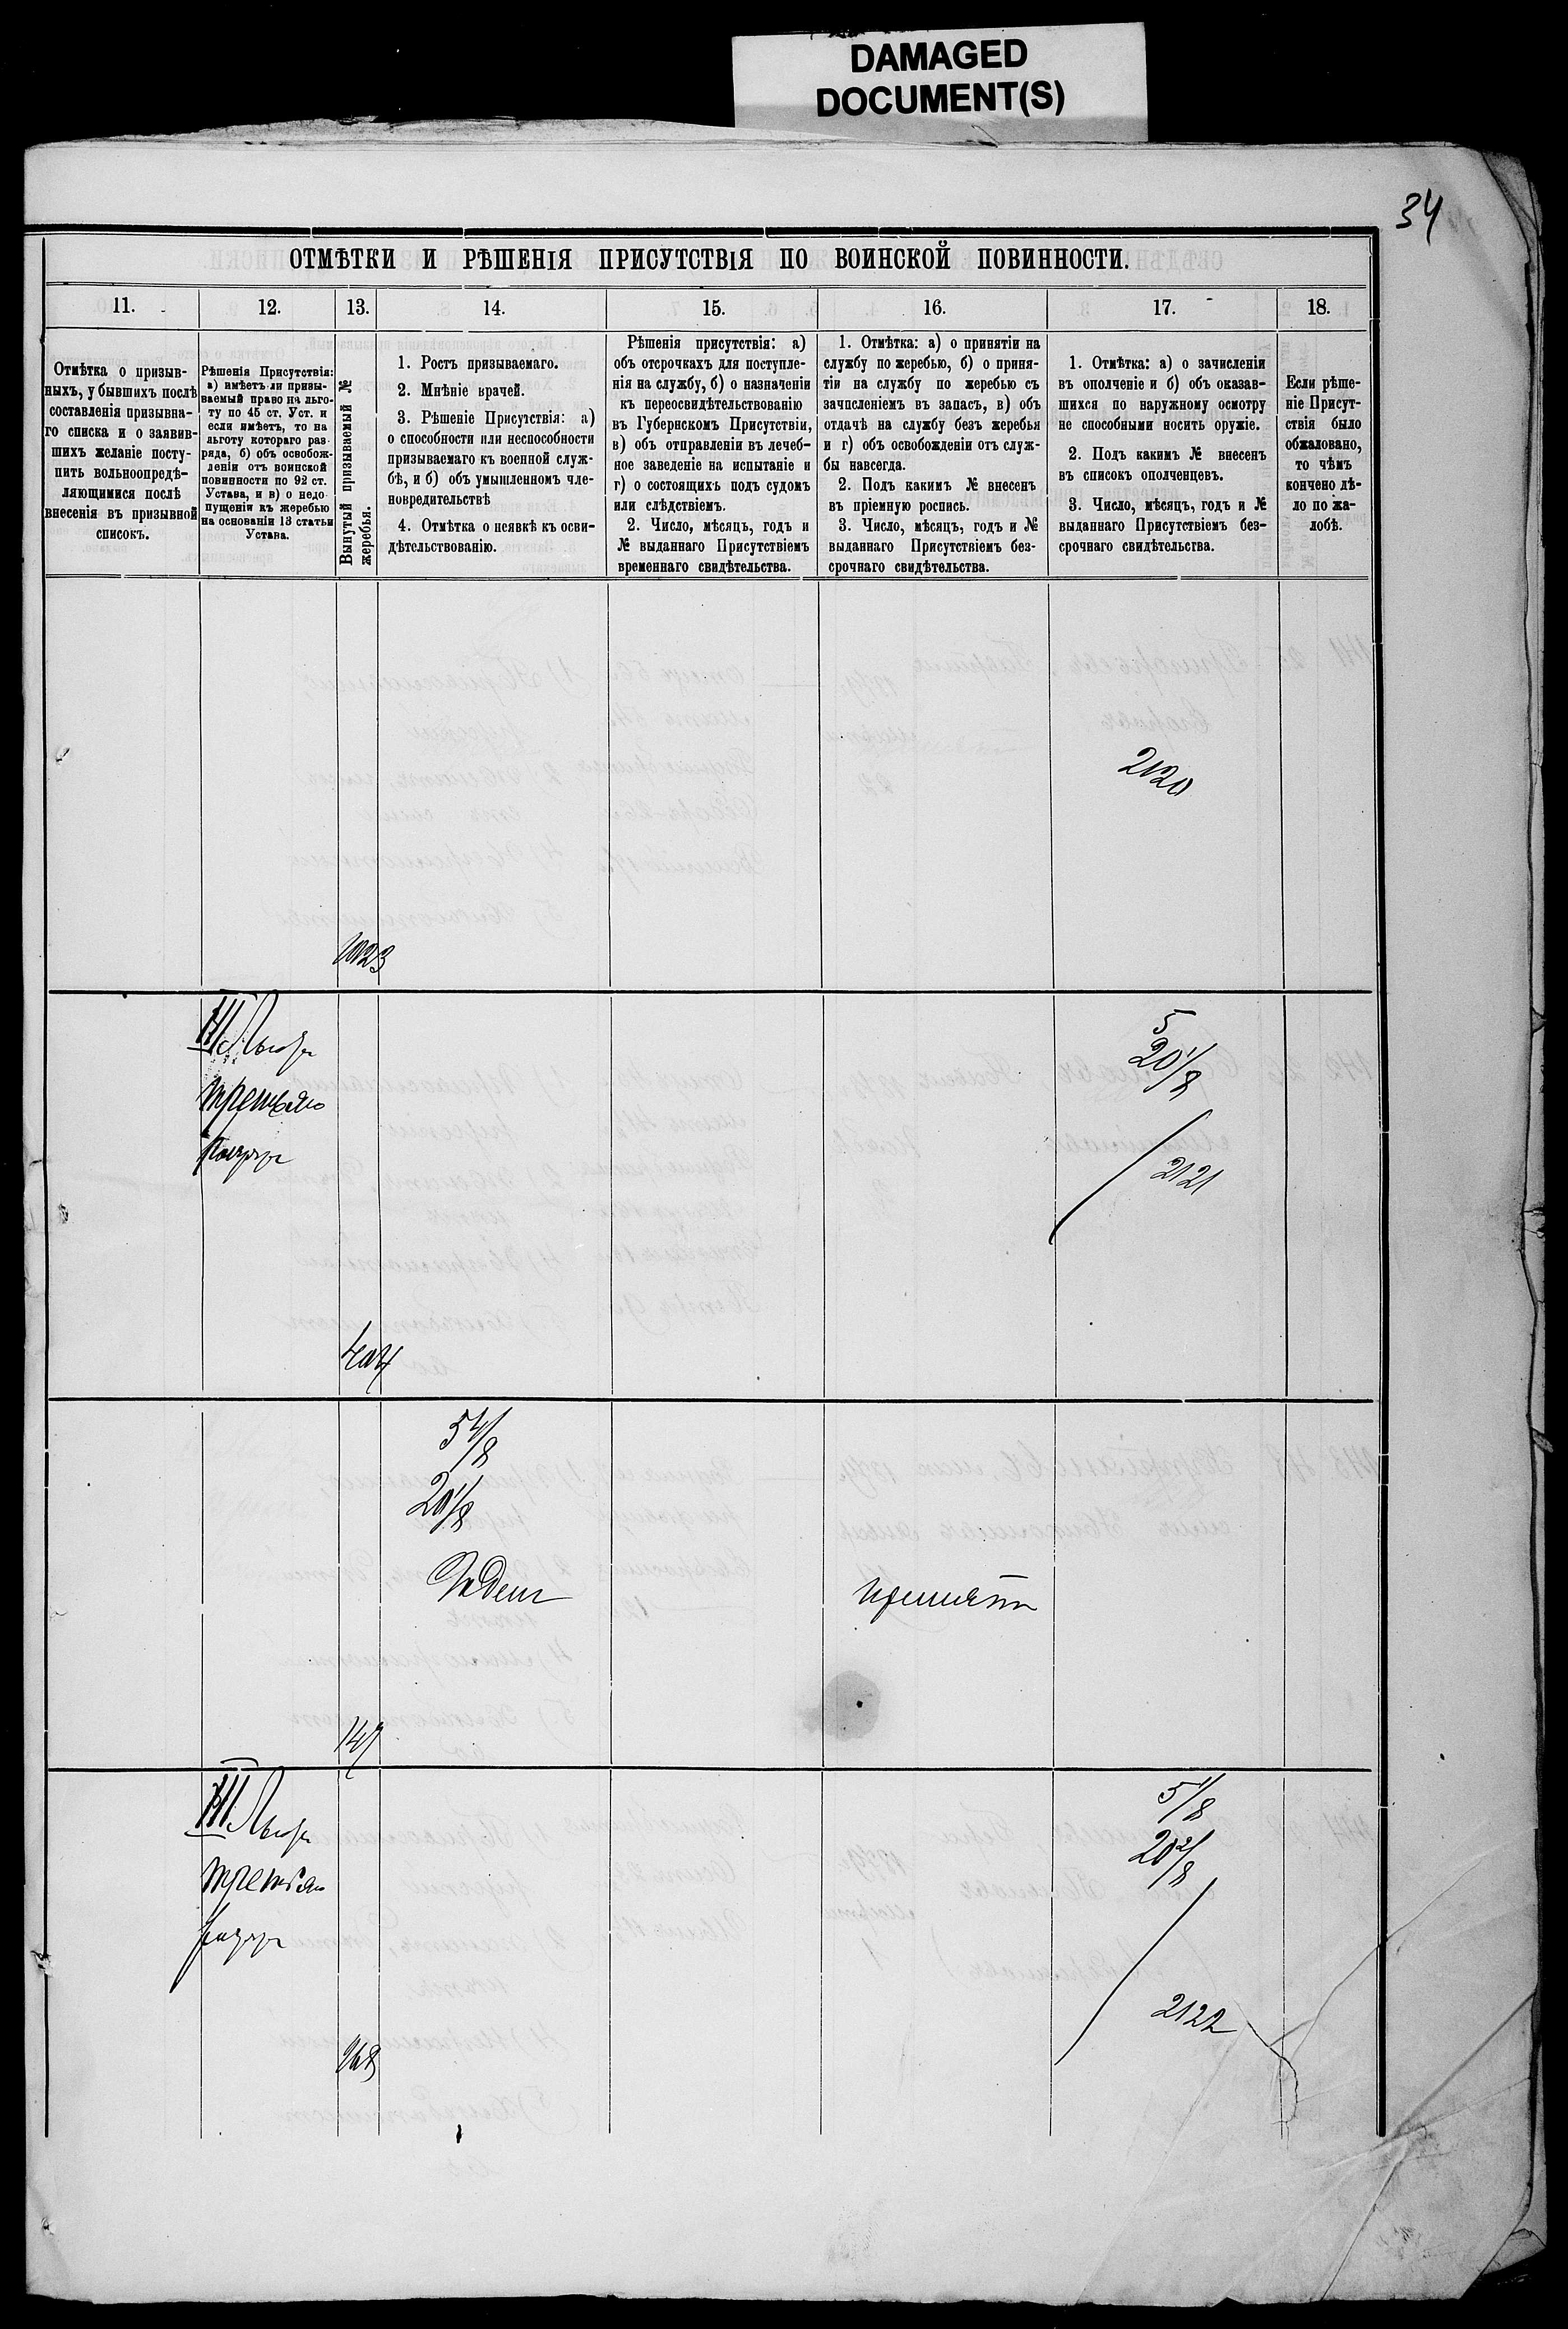 DAMAGED
DOCUMENT(S)
34
ОТМѢТКИ И РѢШЕНІЯ ПРИСУТСТВІЯ ПО ВОИНСКОЙ ПОВИННОСТИ.
11.
12.
13.
14.
15.
16.
17.
18.
Отмѣтка о призыв-
ныхъ, у бывшихъ послѣ
составленія призывна-
го списка и о заявив-
шихъ желаніе посту-
пить вольноопредѣ-
ляющимися послѣ
внесенія въ призывной
списокъ.
Рѣшенія Присутствія:
а) имѣетъ ли призы-
ваемый право на льго-
ту по 45 ст. Уст. и
если имѣетъ, то на
льготу котораго раз-
ряда, б) объ освобож-
деніи отъ воинской
повинности по 92 ст.
Устава, и в) о недо-
пущеніи къ жеребью
на основаніи 13 статьи
Устава.
Вынутый призываемый №
жеребья.
1. Ростъ призываемаго.
2. Мнѣніе врачей.
3. Рѣшеніе Присутствія: а)
о способности или неспособности
призываемаго къ военной служ-
бѣ, и б) объ умышленномъ чле-
новредительствѣ
4. Отмѣтка о неявкѣ къ осви-
дѣтельствованію.
Рѣшенія присутствія: а)
объ отсрочкахъ для поступле-
нія на службу, б) о назначеніи
къ переосвидѣтельствованію
въ Губернскомъ Присутствіи,
в) объ отправленіи въ лечеб-
ное заведеніе на испытаніе и
г) о состоящихъ подъ судомъ
или слѣдствіемъ.
2. Число, мѣсяцъ, годъ и
№ выданнаго Присутствіемъ
временнаго свидѣтельства.
1. Отмѣтка: а) о принятіи на
службу по жеребью, б) о приня-
тіи на службу по жеребью съ
зачисленіемъ въ запасъ, в) объ
отдачѣ на службу безъ жеребья
и г) объ освобожденіи отъ служ-
бы навсегда.
2. Подъ какимъ № внесенъ
въ пріемную роспись.
3. Число, мѣсяцъ, годъ и №
выданнаго Присутствіемъ без-
срочнаго свидѣтельства.
1. Отмѣтка: а) о зачисленіи
въ ополченіе и б) объ оказав-
шихся по наружному осмотру
не способными носить оружіе.
2. Подъ какимъ № внесенъ
въ списокъ ополченцевъ.
3. Число, мѣсяцъ, годъ и №
выданнаго Присутствіемъ без-
срочнаго свидѣтельства.
Если рѣше-
ніе Присут-
ствія было
обжаловано,
то чѣмъ
кончено дѣ-
ло по жа-
лобѣ.
2120
1023
III
третьяго
разряда
5
20 1/8
2121
404
5 4/8
20 1/8
Годенъ
принятъ
147
III
третьяго
разряда
5 1/8
20 2/8
2122
968